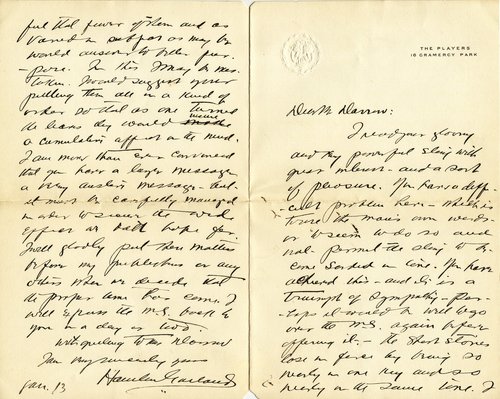 THE PLAYERS
16 GRAMERCY PARK
Dear Mr Darrow:
I read your gloomy
and very powerful story with
great interest - and a sort
of pleasure. You have a diff-
icult problem here - which is
to use the man's own words
or to seem to do so and
not permit the story to be-
come sordid in tone. You have
achieved this - and it is a
triumph of sympathy - Per-
haps it would be well to go
over the M.S. again before
offering it. - The short stories
lose in force by being so
nearly in one key and so
nearly in the same tone. I
feel that fewer of them and as
varied in subject as may be
would answer to better pur-
pose. In this I may be mis-
taken. I would suggest your
putting them all in a kind of
order so that as one turned
the leaves they would insure
a cumulative effect on the mind.
I am more than ever convinced
that you have a large message
a very austere message - but
it must be carefully managed
in order to secure the wide
effect we both hope for.
I will gladly put the matter
before my publishers or any
others when we decide that
the proper time has come. I
will express the M.S. back to
you in a day or two.
With greeting to Mrs Darrow
I am very sincerely yours
Hamlin Garland
Jan. 13